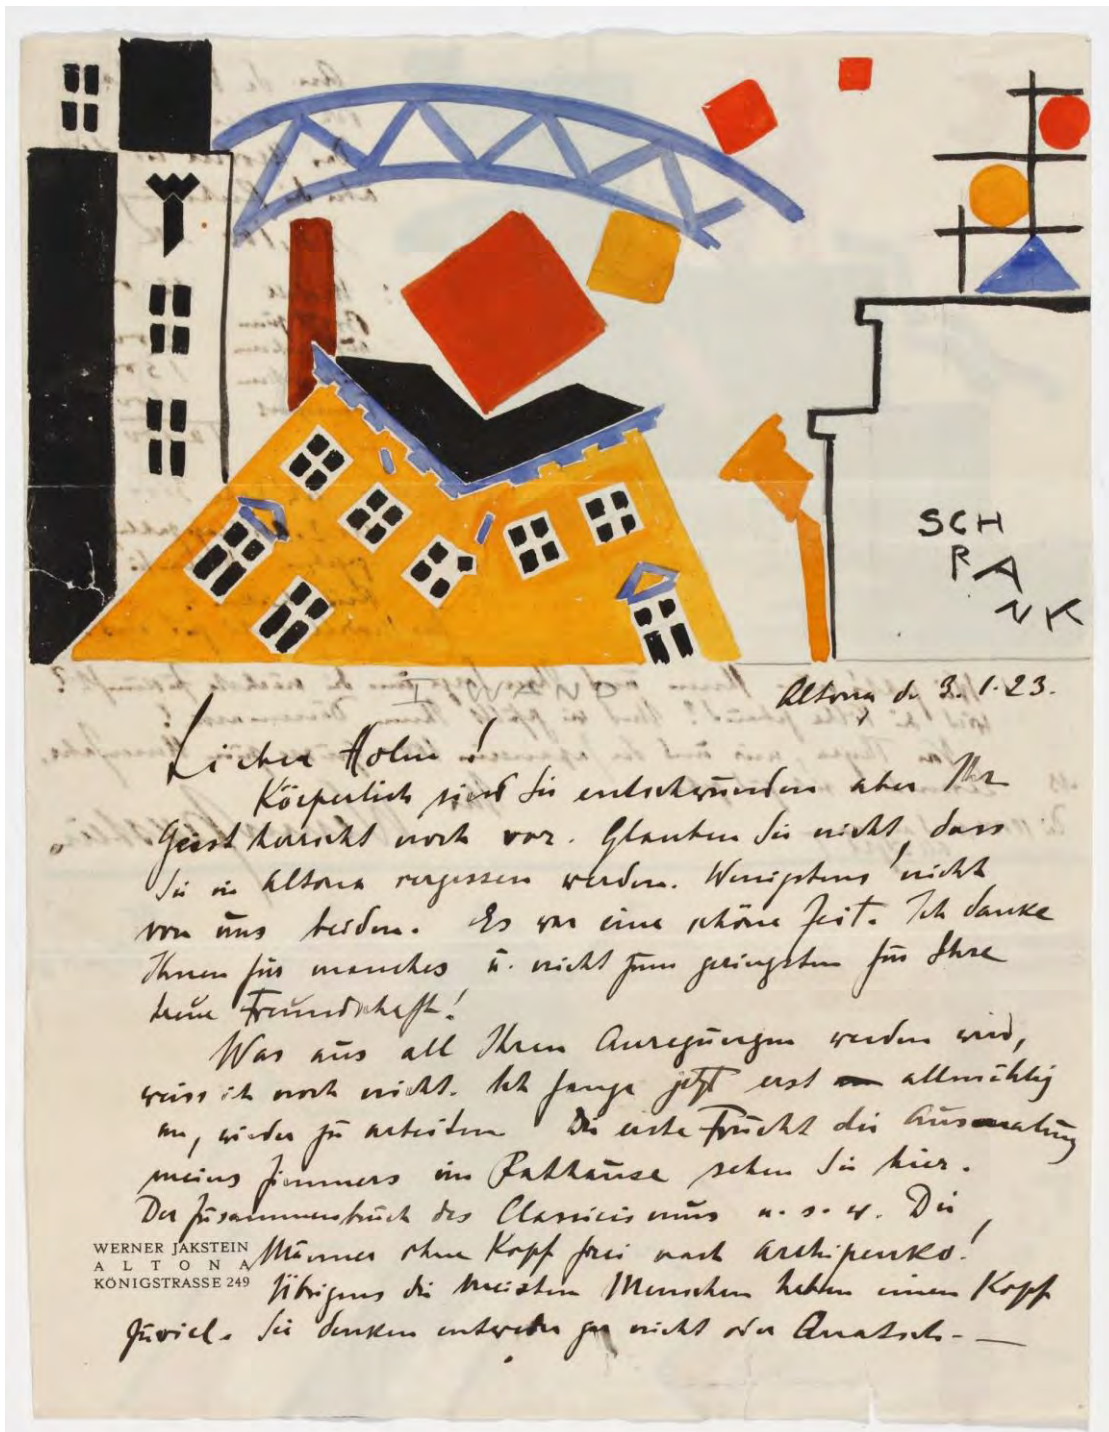 SCH
RA
NK
Altona d. 3. 1. 23.
Lieber Holm!
Körperlich sind Sie entschwunden aber Ihr
Geist herrscht noch vor. Glauben Sie nicht, dass
Sie in Altona vergessen werden. Wenigstens nicht
von uns beiden. Es war eine schöne Zeit. Ich danke
Ihnen für manches u. nicht zum geringsten für Ihre
treue Freundschaft!
Was aus all Ihren Anregungen werden wird,
weiss ich noch nicht. Ich fange jetzt erst allmählig
an, wieder zu arbeiten. Die erste Frucht die Ausmalung
meines Zimmers im Rathause sehen Sie hier.
Der Zusammenbruch des Classicismus u. s. w. Die
Männer ohne Kopf frei nach Archipenko!
Übrigens die meisten Menschen haben einen Kopf
zuviel. Sie denken entweder gar nicht oder
WERNER JAKSTEIN
ALTONA
KÖNIGSTRASSE 249